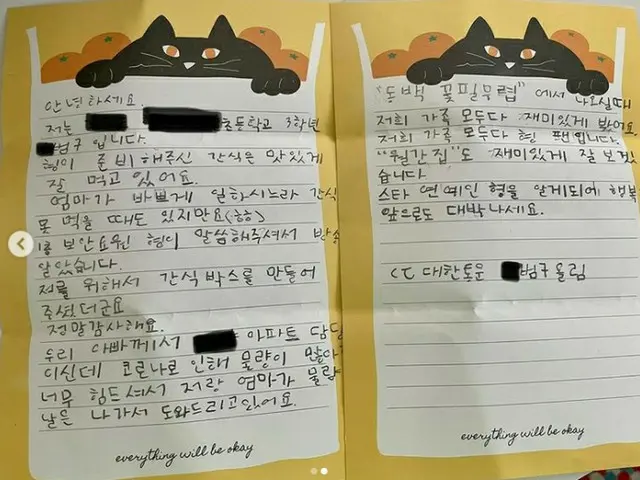 안녕하세요.
저는 초등학교 3학년
범구 입니다.
형이 준비해주신 간식은 맛있게
잘 먹고 있어요.
엄마가 바쁘게 일하시느라 간식
못 먹을 때도 있지만요(하하)
1층 보안요원 형이 말씀해주셔서 방송
알았습니다.
저를 위해서 간식박스를 만들어
주셨더군요
정말감사해요.
우리 아빠께서 아파트 담당
이신데 코로나로 인해 물량이 많아
너무 힘드셔서 저랑 엄마가 물량
날은 나가서 도와드리고있어요.
everything will be okay
"동백 꽃필무렵" 에서 나오실때
저희 가족 모두다 재미있게 봤어요.
저희 가족 모두다 형 팬입니다.
"월간집"도 재미있게 잘 보겠
습니다
스타 연예인 형을 알게되어 행복
앞으로도 대박나세요.
CJ 대한통운 범구올림
everything will be okay